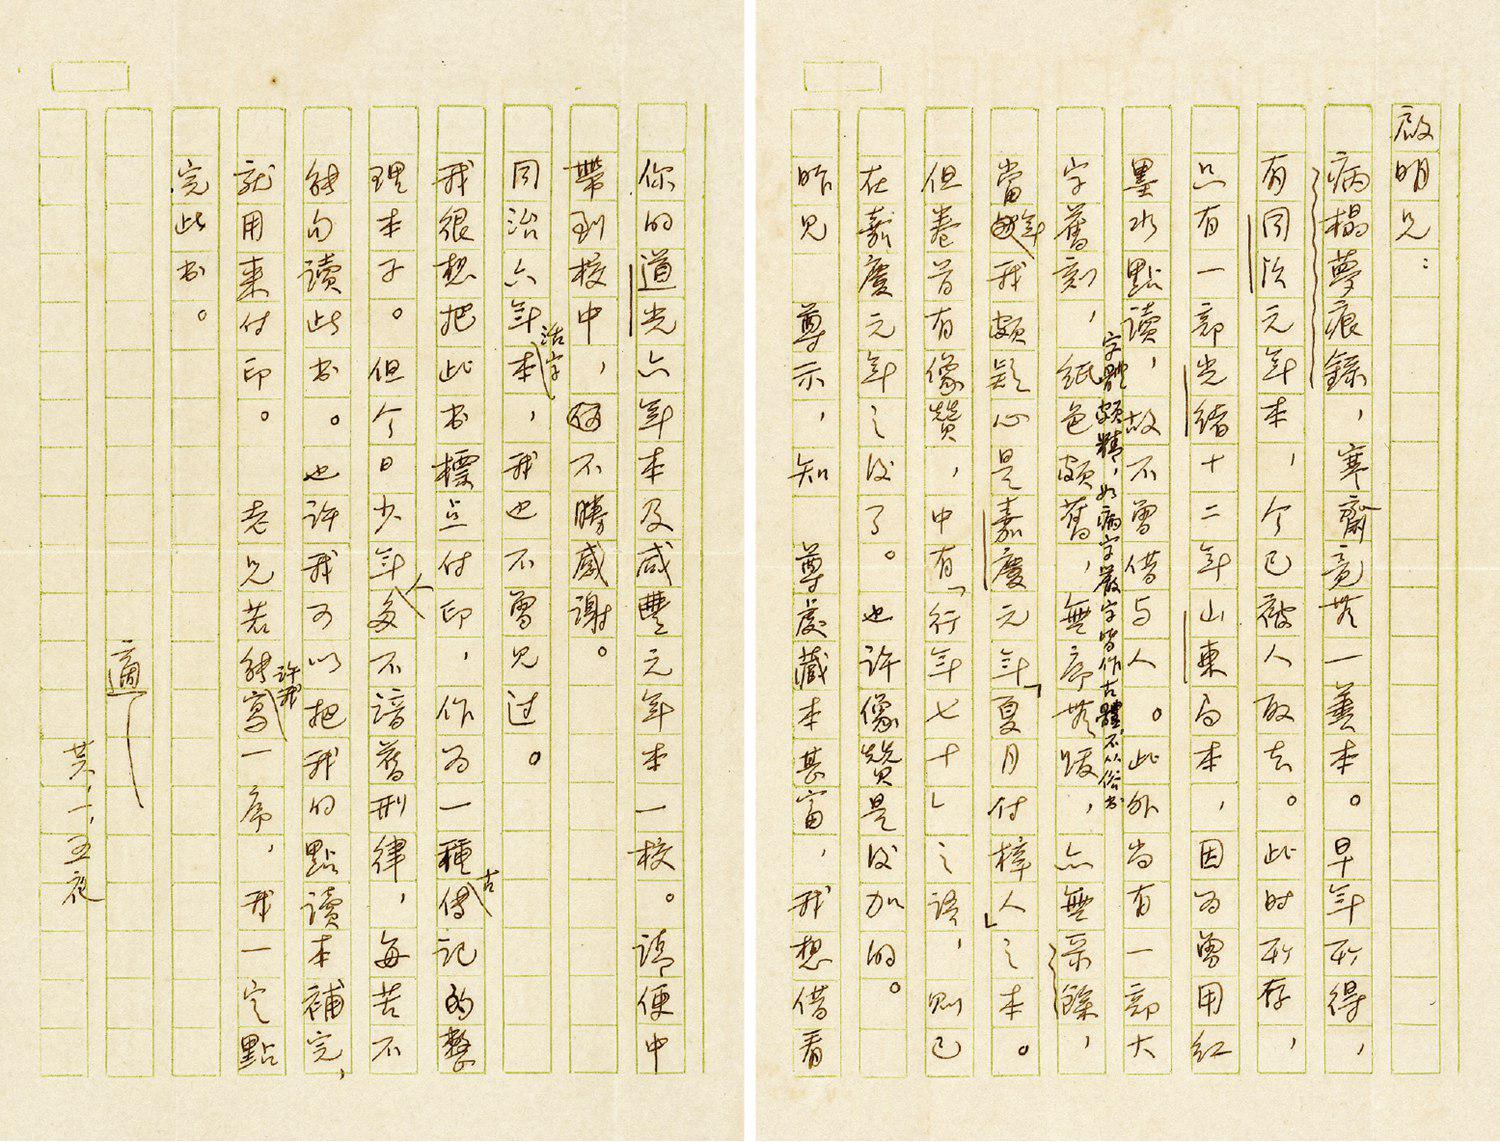 啟明兄：
病榻夢痕錄，寒齋竟無一善本。早年所得，
有同治元年本，今已被人取去。此时所存，
只有一部光緒十二年山東局本，因为曾用紅
墨水點讀，故不曾借与人。此外尚有一部大
字舊刻，紙色頗舊，無序無跋，亦無录餘，
字體頗精，如病字嚴字皆作古體不从俗书
當年我頗疑心是嘉慶元年「夏月付梓人」之本。
但卷首有像贊，中有「行年七十」之語，则已
在嘉慶元年之後了。也许像贊是後加的。
昨见 尊示，知 尊處藏本甚富，我想借看
你的道光六年本及咸豐元年本一校。請便中
帶到校中，不勝感謝。
同治六年活字本，我也不曾见过。
我很想把此书標点付印，作为一種古传记的整
理本子。但今日少年人多不諳舊刑律，每苦不
能句讀此书。也许我可以把我的點讀本補完，
就用来付印。 老兄若能许我寫一序，我一定點
完此书。
適
廿六，一，五夜